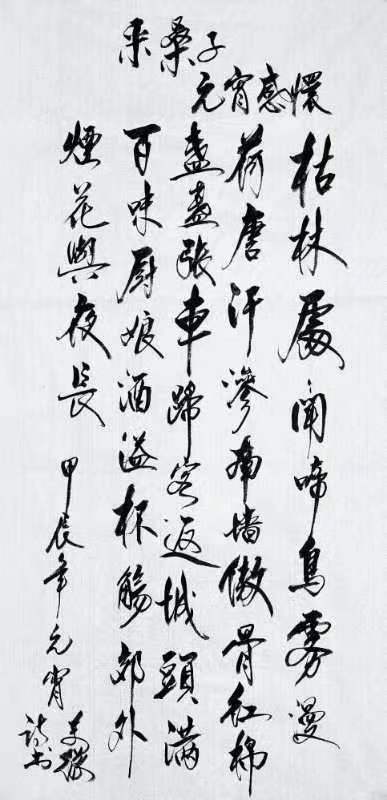 采桑子
元宵感懷
枯林處聞啼鳥雾漫
荷唐汗滲南墙傲骨红棉
盞盞張車歸客返城頭满
百味厨娘酒溢杯觴郊外
煙花與夜長
甲辰年元宵
诗书